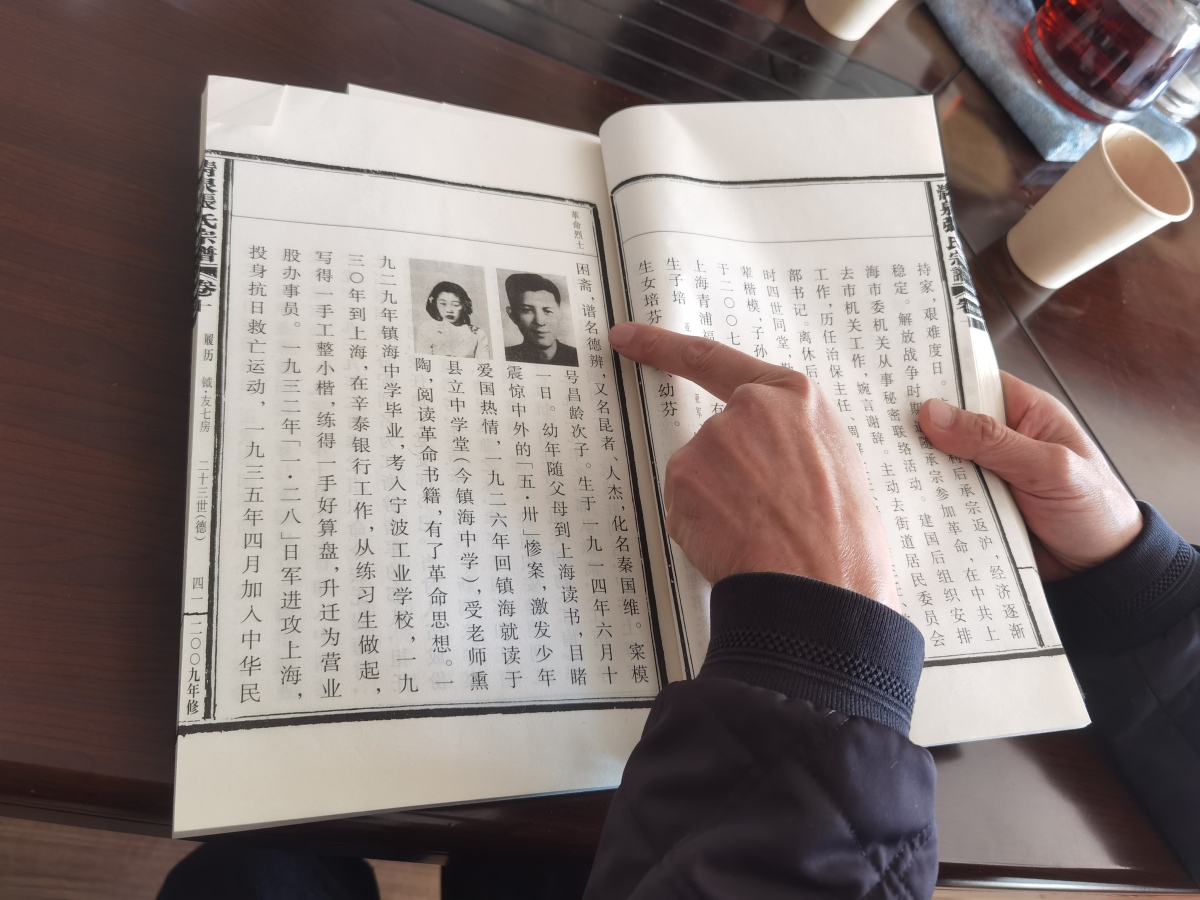 清泉張氏宗譜
持家，艰难度日。利后承宗返沪，经济逐渐
稳定。解放战争时期追随承宗参加革命，在中共上
海市委机关从事秘密联络活动。建国后组织安排
去市机关工作，婉言谢辞。主动去街道居民委员会
工作，历任治保主任、
部书记。离休后
时四世同堂，
辈楷模，子孙
于二〇〇七
上海青浦福
生子培
生女培芬 幼芬。
革命烈士
困斋，谱名德辨，又名昆者、人杰，化名秦国维。寀模
号昌龄次子。生于一九一四年六月十
一日。幼年随父母到上海读书，目睹
震惊中外的「五·卅」惨案，激发少年
爱国热情，一九二六年回镇海就读于
县立中学堂（今镇海中学），受老师熏
陶，阅读革命书籍，有了革命思想。一
九二九年镇海中学毕业，考入宁波工业学校，一九
三〇年到上海，在辛泰银行工作，从练习生做起，
写得一手工整小楷，练得一手好算盘，升迁为营业
股办事员。一九三二年「一·二八」日军进攻上海，
投身抗日救亡运动，一九三五年四月加入中华民
清泉張氏宗譜 卷十 履历 钺·友七房 二十三世（德） 四一 二〇〇九年修